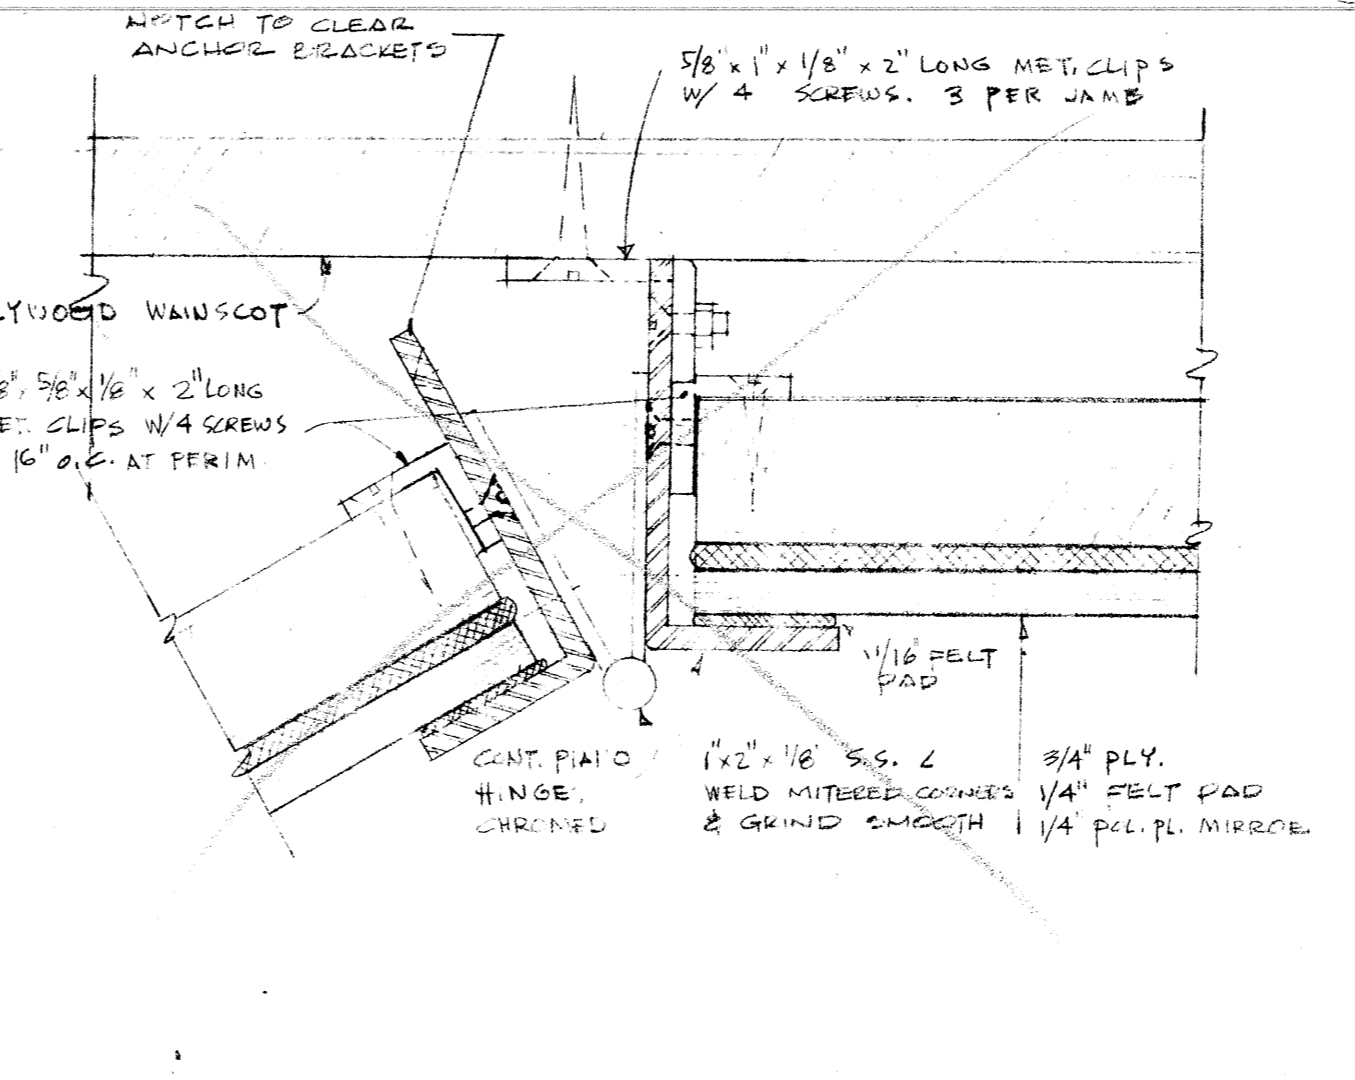 NOTCH TO CLEAR
ANCHOR BRACKETS
5/8" x 1" x 1/8" x 2" LONG MET. CLIPS
W/ 4 SCREWS. 3 PER JAMB
LYWOOD WAINSCOT
8", 5/8" x 1/8" x 2" LONG
ET. CLIPS W/4 SCREWS
16" O.C. AT PERIM.
1/16" FELT
PAD
CONT. PIANO
HINGE,
CHROMED
1" x 2" x 1/8" S.S. L
WELD MITERED CORNERS
& GRIND SMOOTH
3/4" PLY.
1/4" FELT PAD
1/4" POL. PL. MIRROR